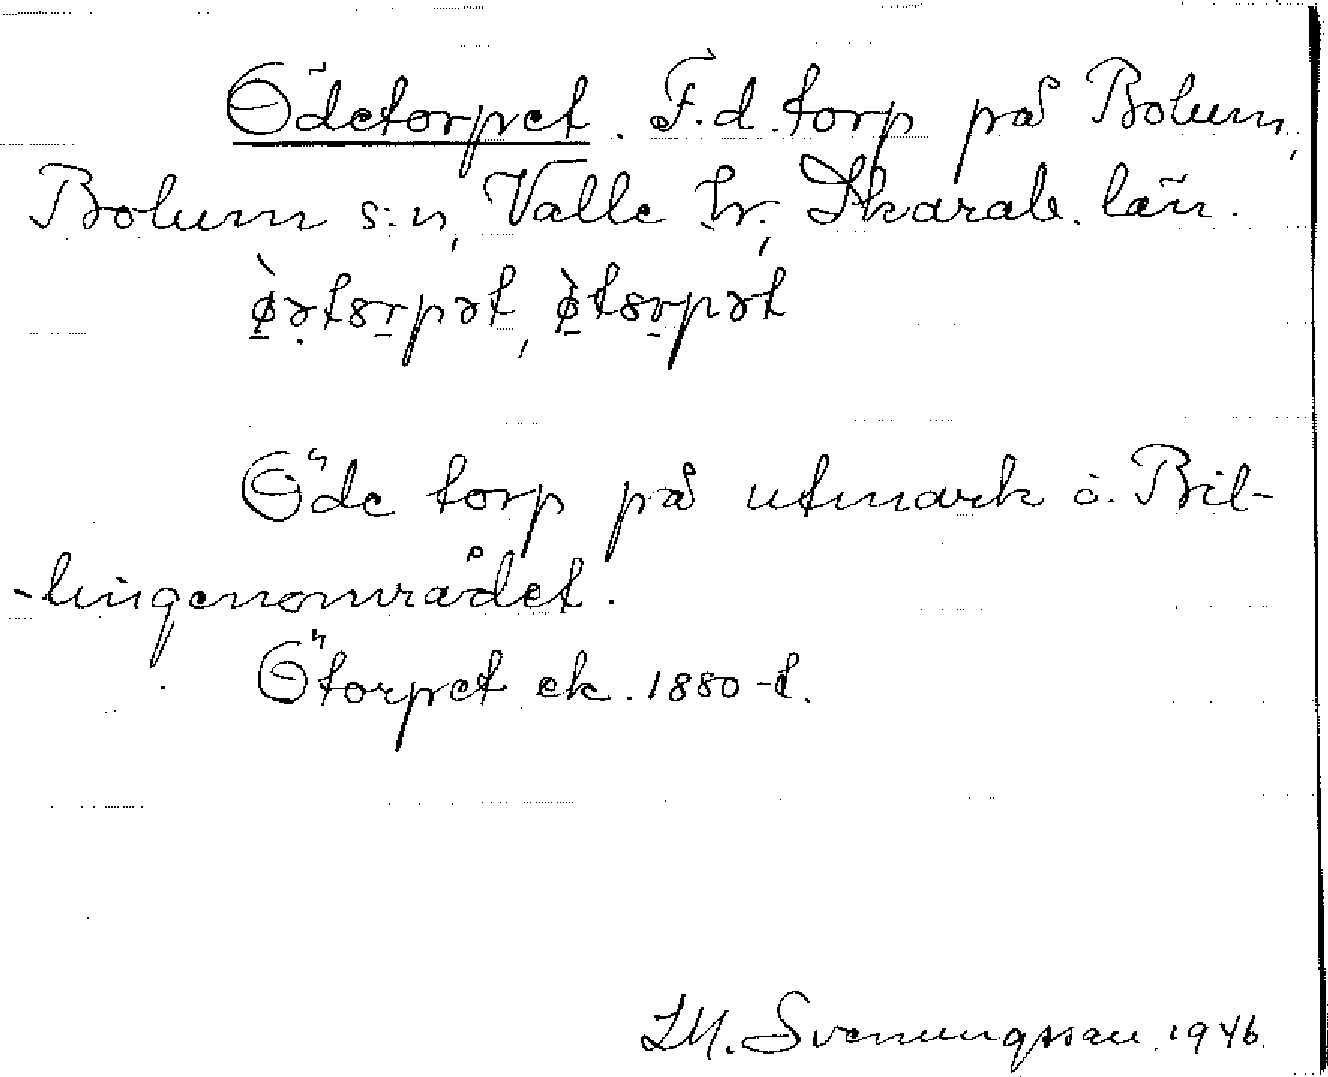 Ödetorpet. F.d. torp på Bolum,
Bolum s:n, Valle hr, Skarab. län.
ø̀ətɷrpət, ø̀tɷrpət
Öde torp på utmark å Bil-
-lingenområdet.
Ötorpet ek. 1880-t.
LM. Svenungsson 1946.